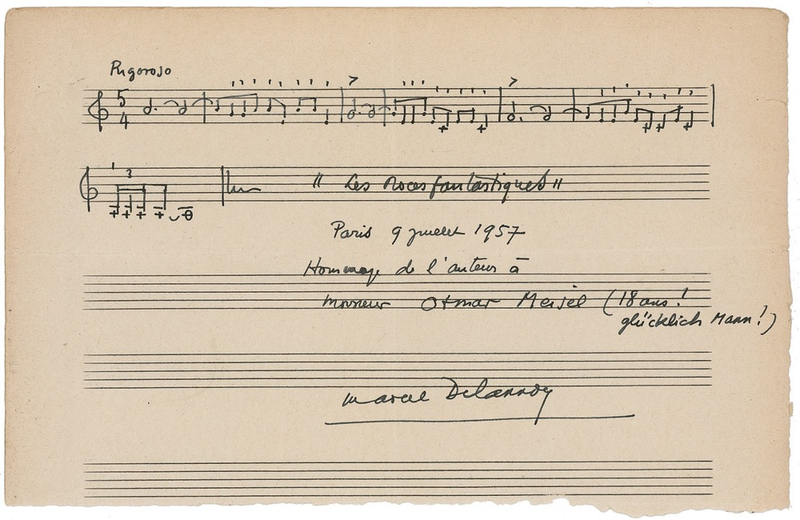 Rigoroso
5
4
3
" Les Noces fantastiques "
Paris 9 juillet 1957
Hommage de l'auteur à
monsieur Otmar Meisel (18 ans!
glücklich Mann!)
Marcel Delannoy